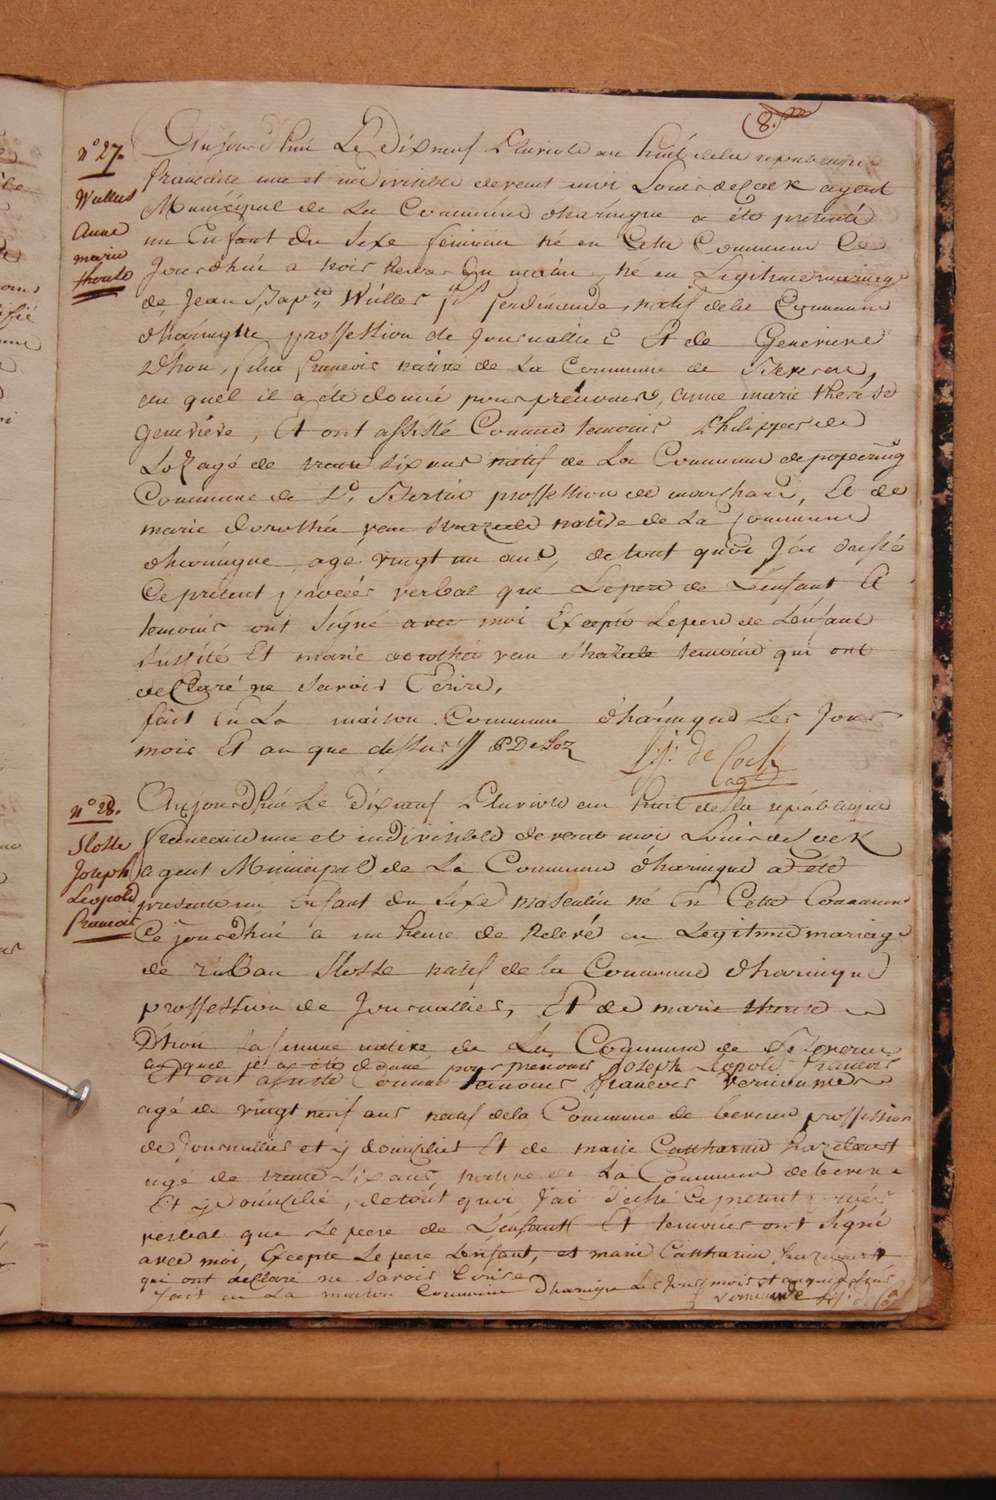 8.
n° 27.
Wullus
Anne
marie
therese
Aujourd'huit Le Dixneuf Pluviose an huit de la republique
francaise une et indivisible devent moi Louis deCock agent
Municipal de La Commune d'haringue a été presenté
un Enfant du Sexe feminin né en Cette Commune Ce
Jourd'huit a trois heures Du matin, né en Legitime mariage
de Jean Bapte Wulles fils ferdinande, natif de la Commune
d'haringue, proffession de Journallier Et de Genevieve
Dhon, filia francois native de La Commune de
au quel il a été donné pour prenoms, anne marie therese
Genevieve, Et ont assisté Comme temoins Philippe de
Loz agé de trente six ans natif de La Commune de popering
Commune de St. Bertin proffession de marchant, Et de
marie dorothée van native de La Commune
d'haringue, agé vingt un ans, de tout quoi J'ai dressé
Ce present procès verbal que Le pere de L'enfant Et
temoins ont Signé avec moi Excepté Le pere de L'enfant
susdité Et marie dorothé van temoine qui ont
deClaré ne Savoir Ecrire,
fait En La maison Commune d'haringue Les Jour
mois Et an que dessus // P De Loz J: J: de Cock
agt
n° 28.
Slosse
Joseph
Leopold
francois
Aujourd'huit Le Dixneuf Pluviose an huit de la republique
francaise une et indivisible devent moi Louis de Cock
agent Municipal de La Commune d'haringue a été
presenté un Enfant du Sexe masculin né En Cette Commune
Ce jourd'hui a un heure de Relevé en Legitime mariage
de ruban Slosse natif de la Commune d'haringue
proffession de Journallier, Et de marie therese
D'hon sa femme native de La Commune de
au quel il a été donné pour prenoms Joseph Leopold francois
Et ont assisté Comme temoins francois
agé de vingt neuf ans natif de la Commune de beveren proffession
de Journallier et y domicilié Et de marie Catharine
agé de trente Six ans, native de La Commune de beveren
Et y Domicilié, de tout quoi J'ai dressé Ce present procès
verbal que Le pere de L'enfant Et temoins ont Signé
avec moi, Excepte Le pere L'enfant, et marie Catharine
qui ont deClaré ne Savoir Ecrire
fait en La maison Commune D'haringue Les Jour mois et an que dessus